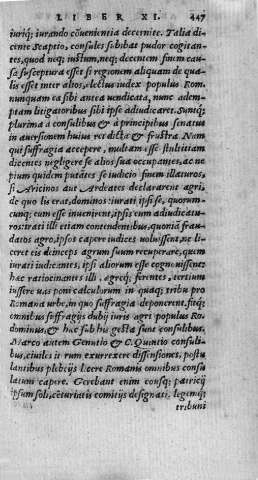 LIBER XI. 447
iuriq; iurando cōuenientia decernite. Talia di
cente Scaptio, consules subibat pudor cogitan-
tes, quod neq; iustum, neq; decentem finem cau-
sa susceptura esset si regionem aliquam de qua-
lis esset inter alios, electus iudex populus Rom.
nunquam ea sibi antea uendicata, nunc adem-
ptam litigatoribus sibi ipse adiudicaret. Suntq;
plurima à consulibus & à principibus senatus
in auersionem huius rei dicta & frustra. Nam
qui suffragia accepere, multam esse stultitiam
dicentes negligere se alios sua occupantes, ac ne
pium quidem putātes se iudicio finem illaturos,
si Aricinos aut Ardeates declararent agri,
de quo lis erat, dominos: iurati ipsi se, quorum-
cunq; eum esse inuenirent, ipsis eum adiudicatu-
ros: irati illi etiam contendentibus, quoniā frau-
datos agro, ipsos capere iudices uoluissent, ne li-
ceret eis deinceps agrum suum recuperare, quem
iurati iudicantes, ipsi aliorum esse cognouissent:
hæc ratiocinantes illi, ægreq; ferentes, tertium
iussere uas poni calculorum in quaq; tribu pro
Romana urbe, in quo suffragia deponerent, fitq;
omnibus suffragijs dubij iuris agri populus Ro.
dominus, & hæc sub his gesta sunt consulibus.
Marco autem Genutio & C. Quintio consuli-
bus, ciuiles iterum exurrexere dissensiones, postu
lantibus plebeijs licere Romanis omnibus consu
latum capere. Gerebant enim consq; patricij
ipsum soli, cēturiatis comitijs designati, legemq;
tribuni